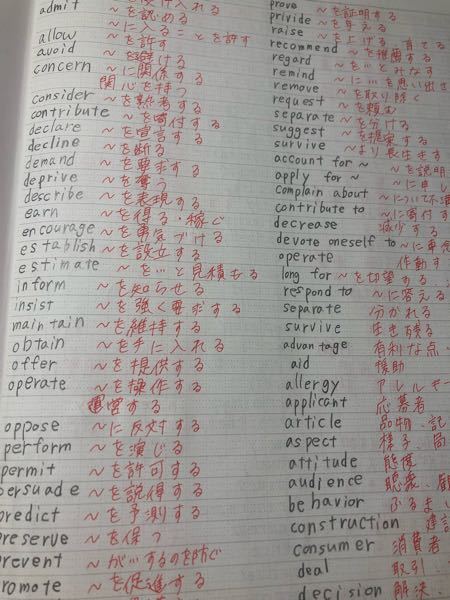 admit ~を認める
~に入ることを許す
allow ~を許す
avoid ~を避ける
concern ~に関係する
関心を持つ
consider ~を熟考する
contribute ~を寄付する
declare ~を宣言する
decline ~を断る
demand ~を要求する
deprive ~を奪う
describe ~を表現する
earn ~を得る・稼ぐ
encourage ~を勇気づける
establish ~を設立する
estimate ~を…と見積もる
inform ~を知らせる
insist ~を強く要求する
maintain ~を維持する
obtain ~を手に入れる
offer ~を提供する
operate ~を操作する
運営する
oppose ~に反対する
perform ~を演じる
permit ~を許可する
persuade ~を説得する
predict ~を予測する
reserve ~を保つ
prevent ~が…するのを防ぐ
romote ~を促進する
prove ~を証明する
privide ~を与える
raise ~を上げる 育てる
recommend ~を推薦する
regard ~を…とみなす
remind ~に…を思い出さ
remove ~を取り除く
request ~を頼む
separate ~を分ける
suggest ~を提案する
survive ~より長生きす
account for ~ ~を説明
apply for ~ ~に申し
complain about ~について不満
contribute to ~に寄付す
decrease 減少する
devote oneself to ~に専念
operate 作動す
long for ~を切望する
respond to ~に答える
separate 分かれる
survive 生き残る
advantage 有利な点
aid 援助
allergy アレルギー
applicant 応募者
article 品物、記
aspect 様子、局
attitude 態度
audience 聴衆、観
behavior ふるまい
construction 建設
consumer 消費者
deal 取引
decision 解決